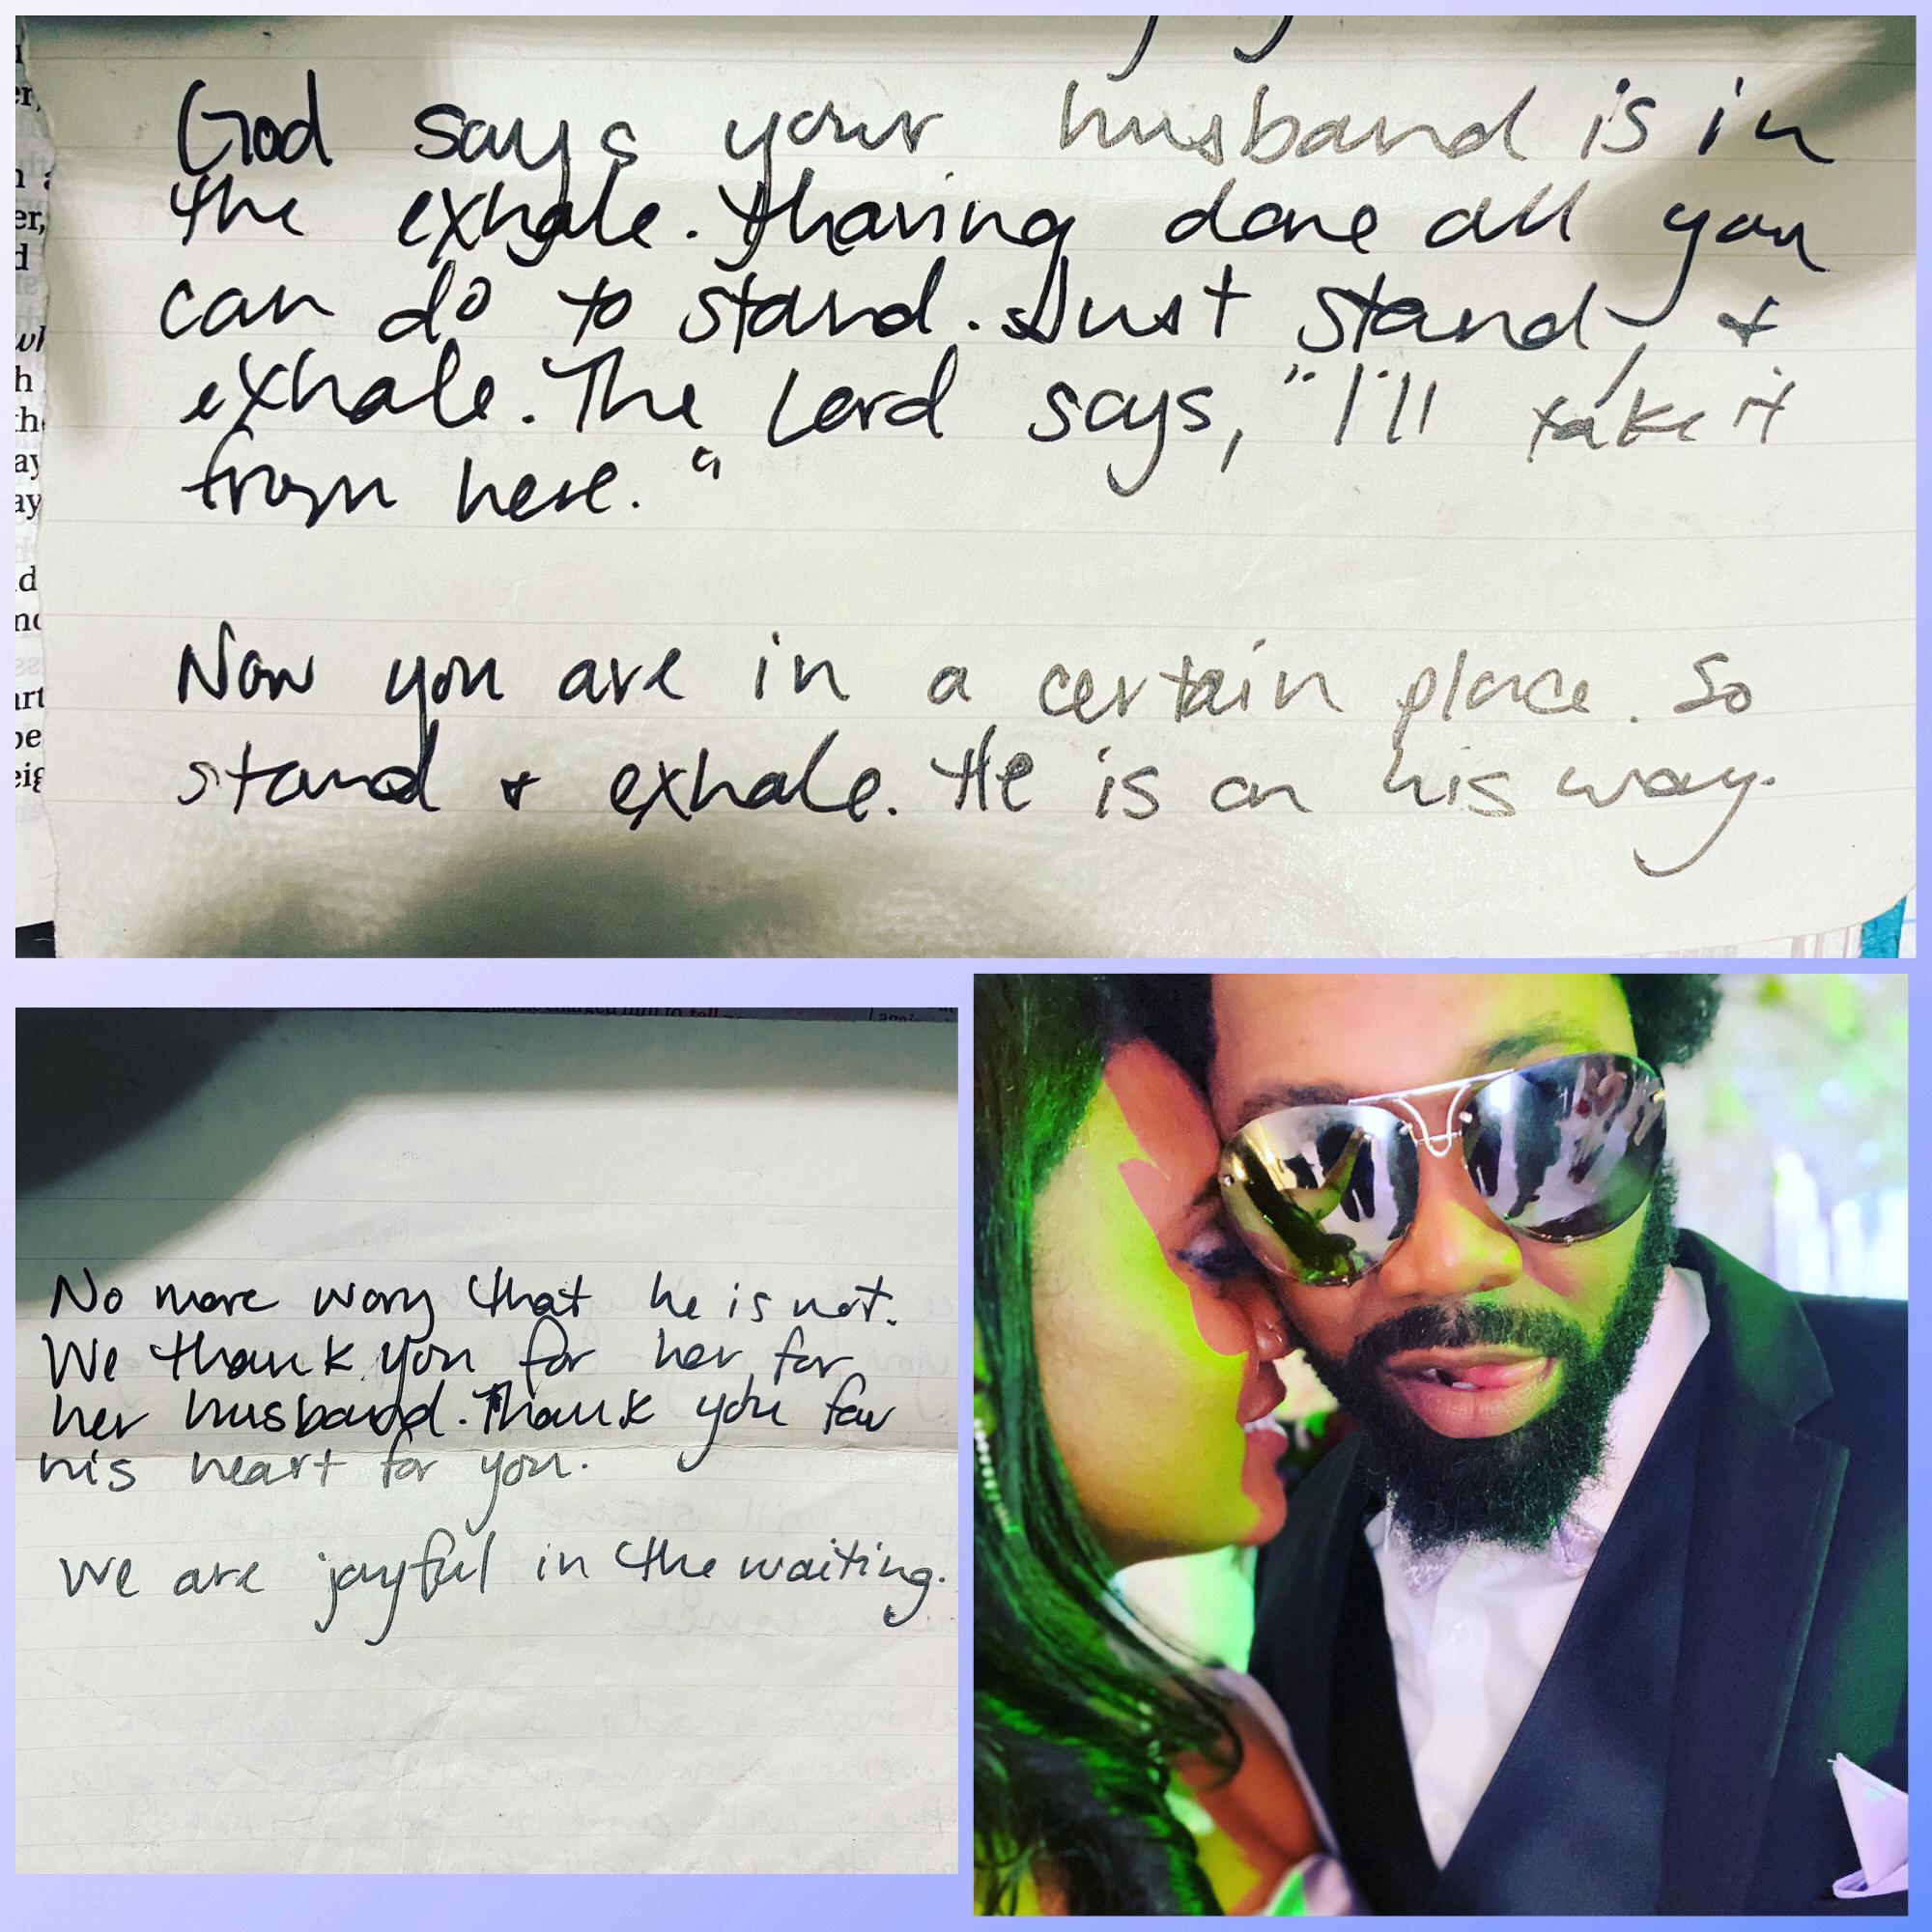 God says your husband is in
the exhale. Having done all you
can do to stand. Just stand, &
exhale. The Lord says, "I'll take it
from here."
Now you are in a certain place. So
stand & exhale. He is on his way.
No more worry that he is not.
We thank you for her, for
her husband. Thank you for
his heart for you.
We are joyful in the waiting.